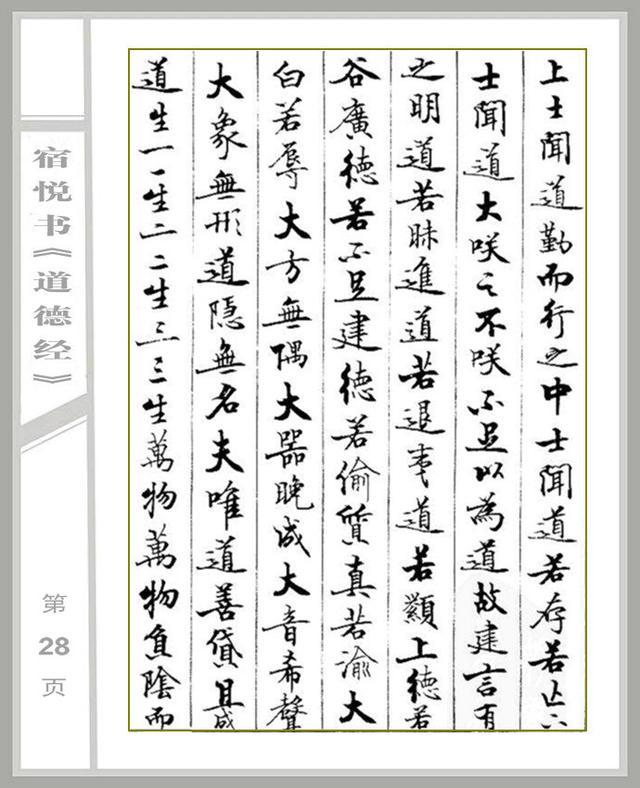 上士聞道勤而行之中士聞道若存若亡下
士聞道大咲之不咲不足以為道故建言有
之明道若昧進道若退夷道若纇上德若
谷廣德若不足建德若偷質真若渝大
白若辱大方無隅大器晚成大音希聲
大象無形道隱無名夫唯道善貸且成
道生一一生二二生三三生萬物萬物負陰而
宿悦书《道德经》
第
28
页